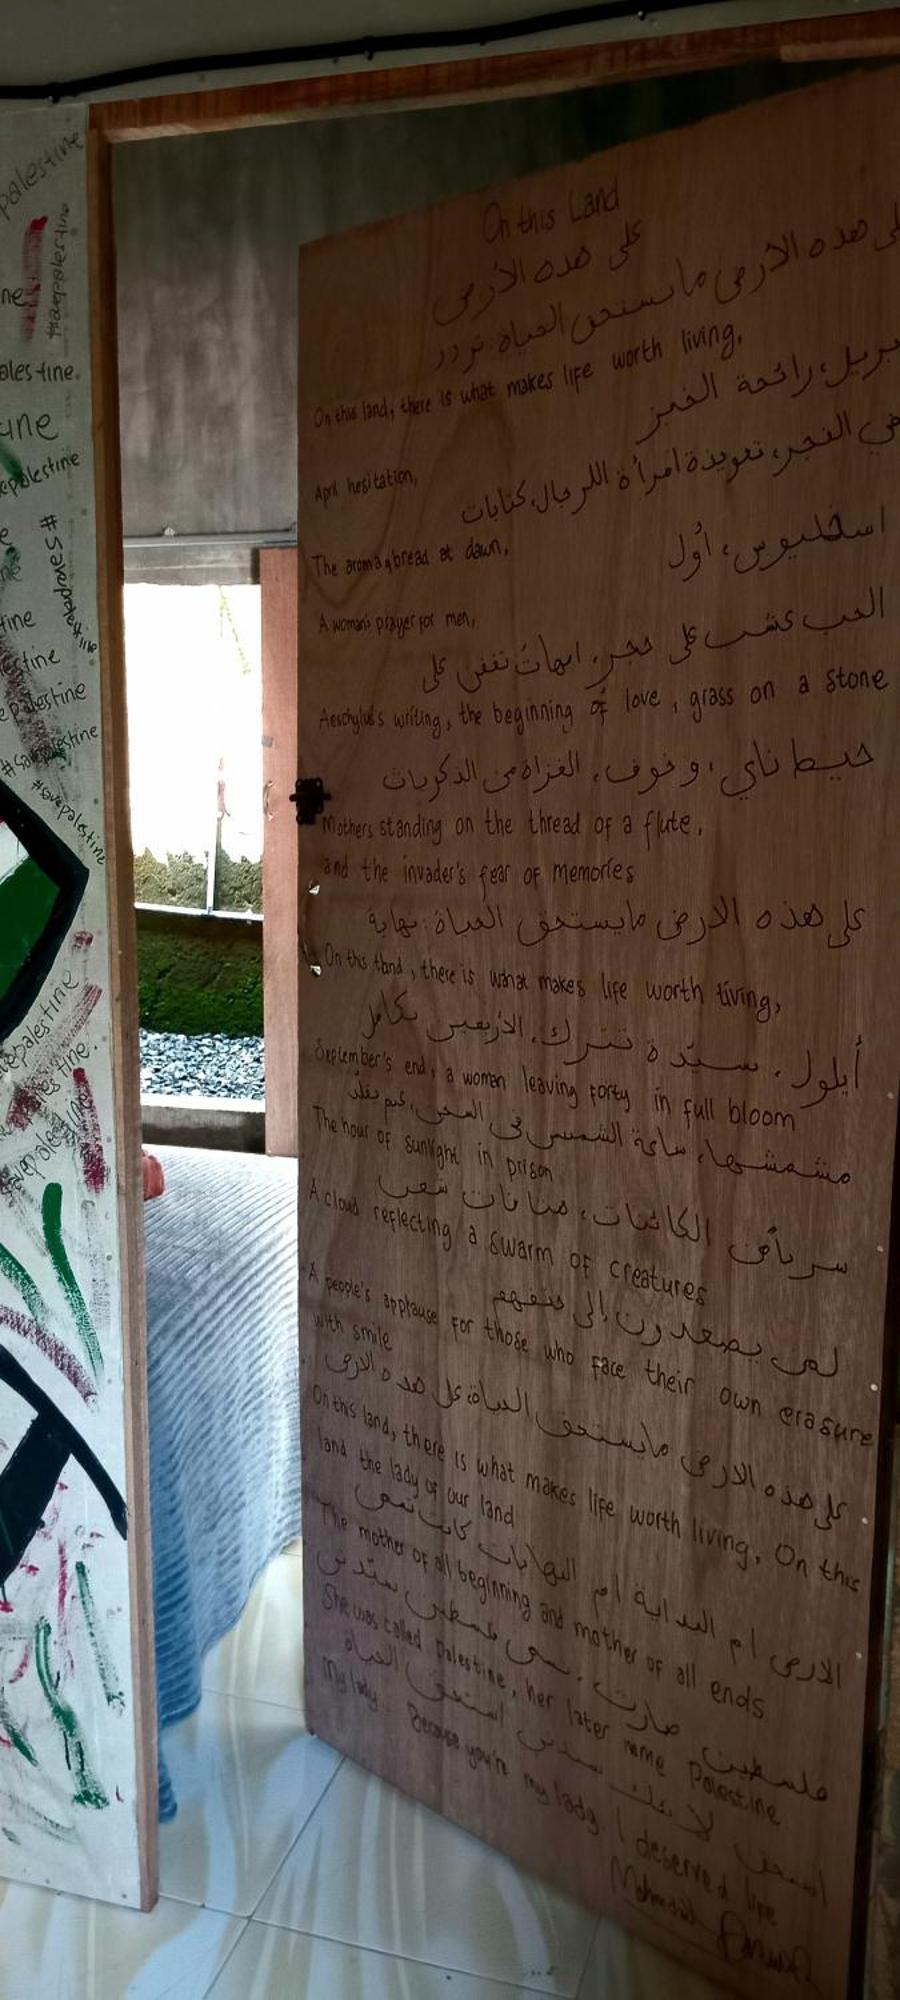 palestine
#savepalestine
ales tine.
une
epalestine
#savepalestine
tine
estine
e palestine
#Savepalestine
#savepalestine
avepalestine
On this Land
على هذه الأرض
على هذه الأرض ما يستحق الحياة: تردد
On this land, there is what makes life worth living.
بريل، رائحة الخبز
April hesitation,
في الفجر، تعويذة امرأة للرجال، كتابات
The aroma of bread at dawn,
اسخليوس، أول
A woman's prayer for men,
الحب عشب على حجر، امهات تقفن على
Aeschylus's writing, the beginning of love, grass on a stone
خيط ناي، وخوف، الغزاة من الذكريات
Mothers standing on the thread of a flute,
and the invader's fear of memories
على هذه الارض مايستحق الحياة: نهاية
On this land, there is what makes life worth living,
أيلول، سيّدة تترك، الأربعين بكامل
September's end, a woman leaving forty in full bloom
مشمشها، ساعة الشمس في السجن، غيم يقلّد
The hour of sunlight in prison
سربا من الكائنات، هتافات شعب
A cloud reflecting a swarm of creatures
لمن يصعدون إلى حتفهم
A people's applause for those who face their own erasure
with smile
على هذه الارض مايستحق الحياة، على هذه الارض
On this land, there is what makes life worth living, On this
land the lady of our land
الارض ام البداية ام النهايات كانت تسمى
The mother of all beginning and mother of all ends
فلسطين صارت، تسمى فلسطين سيّدتي
She was called palestine, her later name Palestine
استحق لانك سيدتي استحق الحياة
My lady.. Because you're my lady. I deserved life
Mahmoud Darwish